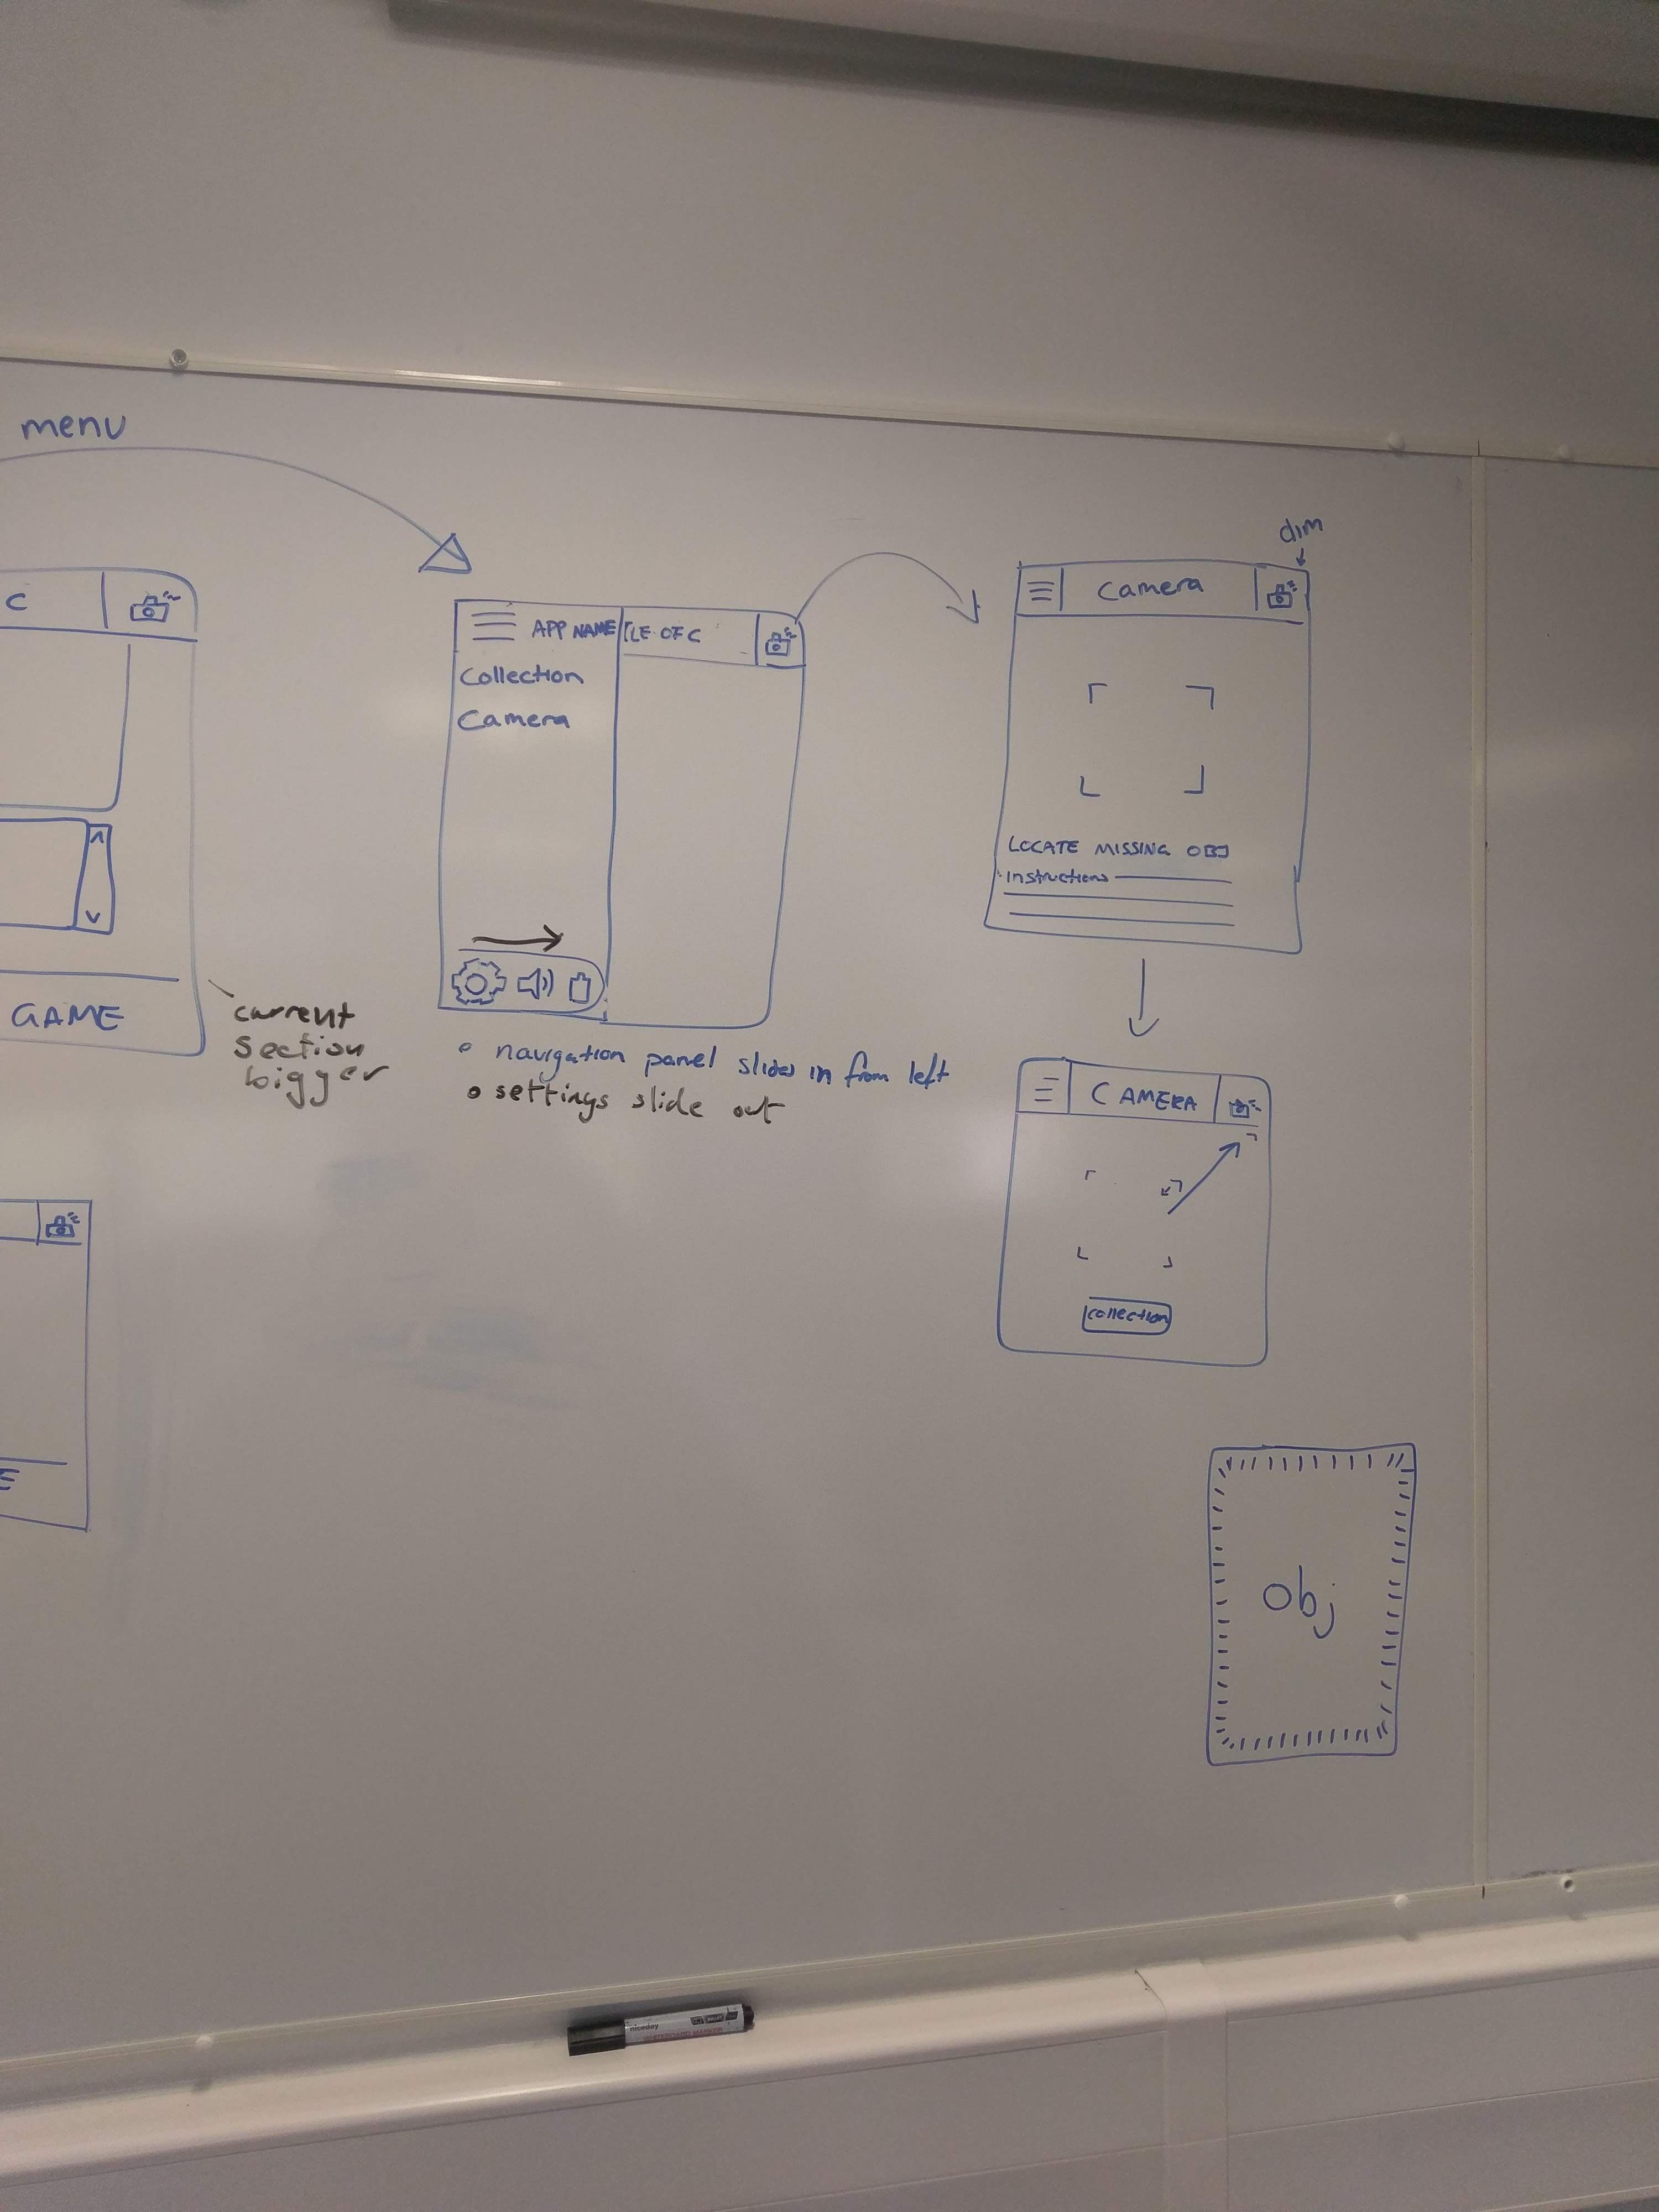 menu
C
GAME
current
section
bigger
E
APP NAME
LE OF C
Collection
Camera
• navigation panel slides in from left
• settings slide out
dim
Camera
LOCATE MISSING OBJ
Instructions
CAMERA
collection
Obj
niceday
WHITEBOARD MARKER